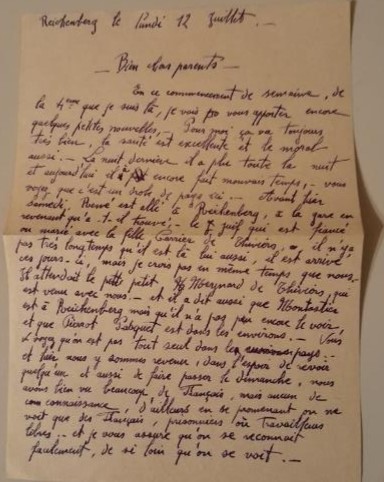 Reichenberg le Lundi 12 Juillet. -
- Bien chers parents -
En ce commencement de semaine, de
la 4ème que je suis là, je vais pro vous apporter encore
quelques petites nouvelles. - Pour moi ça va toujours
très bien, la santé est excellente et le moral
aussi. - La nuit dernière il a plu toute la nuit
et aujourd'hui il a encore fait mauvais temps, - vous
voyez que c'est un drôle de pays ici - Avant hier
Samedi, René est allé à Reichenberg, à la gare en
revenant qu'a-t-il trouvé, - le juif qui est fiancé
ou marié avec la fille Carrier de Thiviers, - il n'y a
pas très longtemps qu'il est là lui aussi, il est arrivé
ces jours-ci, mais je crois pas en même temps que nous.
Il attendait le petit Meynard de Thiviers, qui
est venu avec nous. - et il a dit aussi que
est à Reichenberg mais qu'il n'a pas pu encore le voir,
et que Pierrot Paquet est dans les environs. - Vous
voyez qu'on est pas tout seul dans les pays -
et hier nous y sommes revenu, dans l'espoir de revoir
quelqu'un et aussi de faire passer le Dimanche, nous
avons bien vu beaucoup de Français, mais aucun de
connaissance, d'ailleurs en se promenant on ne
voit que des Français, prisonniers ou Travailleurs
libres. - et je vous assure qu'on se reconnait
facilement, de si loin qu'on se voit. -